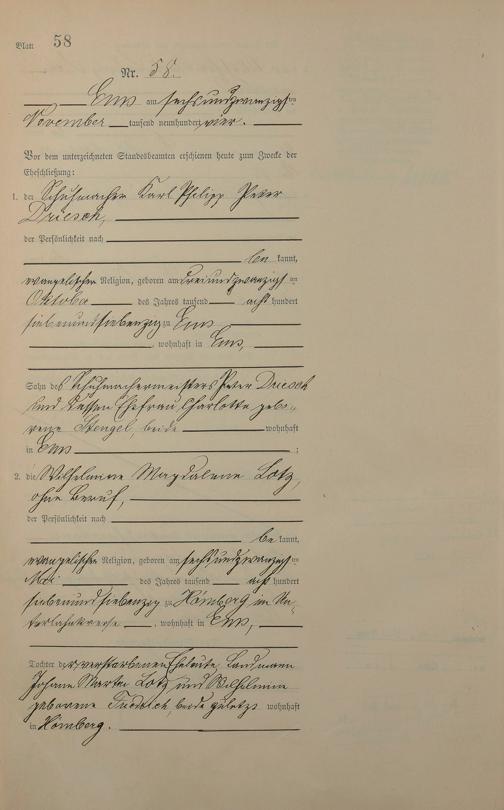 Blatt 58
Nr. 58.
Ems am sechsundzwanzigsten
November tausend neunhundert vier.
Vor dem unterzeichneten Standesbeamten erschienen heute zum Zwecke der
Eheschließung:
1. der Schuhmacher Karl Philipp Peter
Driesch,
der Persönlichkeit nach
be kannt,
evangelischer Religion, geboren am dreiundzwanzigsten
Oktober des Jahres tausend acht hundert
siebenundsiebenzig zu Ems
, wohnhaft in Ems,
Sohn des Schuhmachermeisters Peter Driesch
und dessen Ehefrau Charlotte gebo-
rene Stengel, beide wohnhaft
in Ems ;
2. die Wilhelmine Magdalene Lotz,
ohne Beruf,
der Persönlichkeit nach
be kannt,
evangelischer Religion, geboren am sechsundzwanzigsten
Mai des Jahres tausend acht hundert
siebenundsiebenzig zu Hömberg im Un-
terlahnkreise , wohnhaft in Ems,
Tochter der verstorbenen Eheleute, Landmann
Johann Martin Lotz und Wilhelmine
geborene beide zuletzt wohnhaft
in Hömberg.